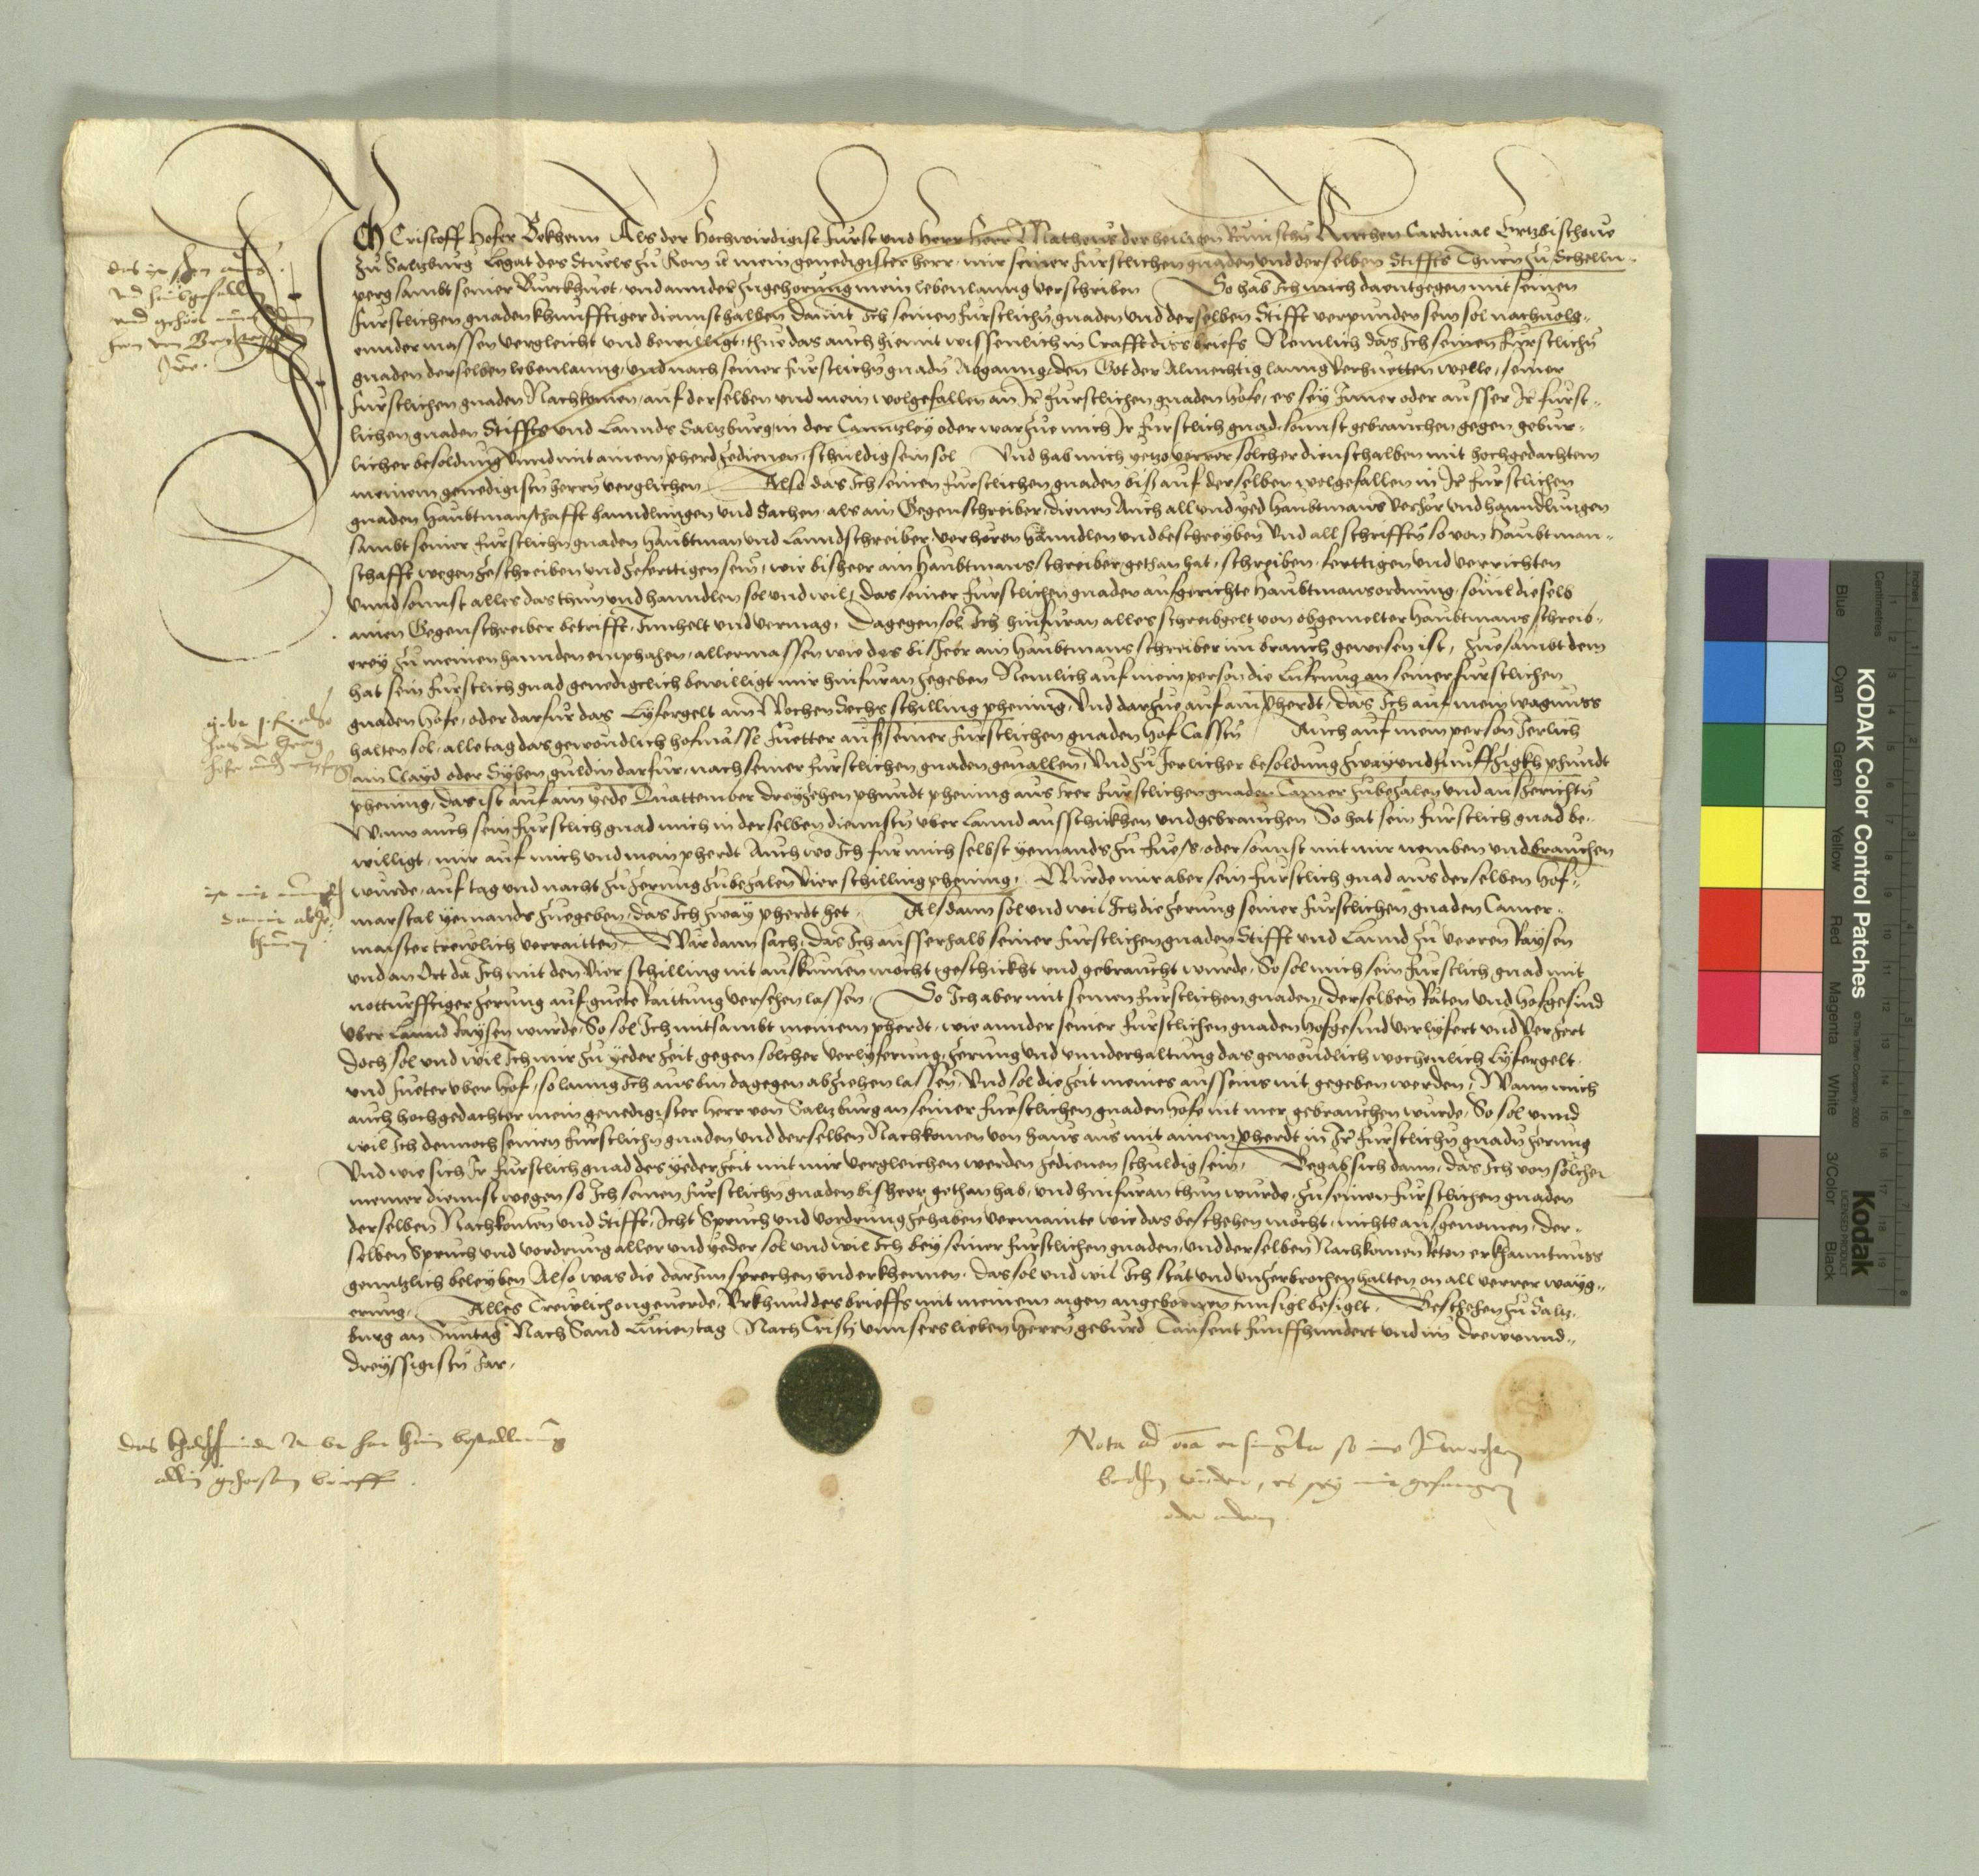 Ich Cristoff Hofer Bekhenn Als der Hochwirdigist Furst und Herr Herr Matheus der heiligen Römischn Kirchen Cardinal Ertzbischove
zu Saltzburg Legat des Stuels zu Rom mein genedigister Herr, mir seiner furstlichen gnaden und derselben Stiffts Thurn zu Schelln-
perg sambt seiner Burckhuet, und annder zugehorung mein lebenlanng verschriben So hab Ich mich daentgegen mit seinen
furstlichen gnaden khunfftiger diennsthalben damit Ich seinen furstlichn gnaden und derselben Stifft verpunden sein sol nachvolg-
ennder massen vergleicht und bewilligt, thue das auch hiemit wissenlich in Crafft diss briefs Nemlich das Ich seinen Furstlichn
gnaden derselben lebenlanng, und nach seiner furstlichn gnadn Abganng, den Got der Almechtig lanng verhuetten welle, seiner
furstlichen gnaden Nachkomen, auf derselben und mein wolgefallen an Ir furstlichen gnaden Hofe, es sey Inner oder ausser Ir furst-
lichen gnaden Stiffts und Lannds Saltzburg, in der Canntzley oder warzue mich Ir furstlich gnad, sonnst gebrauchen gegen gebur-
licher besoldung unnd mit ainem pherd zedienen, schuldig sein sol Und hab mich yetzo verrer solcher diensthalben mit hochgedachtem
meinem genedigistn herrn verglichen Also das Ich seinen furstlichen gnaden biß auf derselben wolgefallen in Ir furstlichen
gnaden Haubtmanschafft hanndlungen und Sachen, als ain Gegenschreiber, dienen Auch all und yed Haubtmans Verhör und hanndlungen
sambt seiner furstlichn gnaden Haubtman und Lanndschreiber, verhören hanndlen und beschreyben Und all schrifftn so von Haubtman-
schafft wegen zeschreiben und zeferttigen sein, wie bisheer ain Haubtmans schreiber gethan hat, schreiben, ferttigen und verrichten
unnd sonnst alles das thun und hanndlen sol und wil, das seiner furstlichen gnaden aufgerichte Haubtmansordnung, sovil dieselb
ainen Gegenschreiber betrifft, Innhelt und vermag, Dagegen sol Ich hinfuran alles schreibgelt von obgemelter Haubtmans schreib-
erey zu meinen hannden emphahen, allermassen wie des bisheer ain Haubtmans schreiber im brauch gewesen ist, Zuesambt dem
hat sein furstlich gnad genedigclich bewilligt mir hinfuran zegeben Nemlich auf mein person die Lifrung an seiner furstlichen
gnaden Hofe, oder darfur das Lyfergelt ain Wochen Sechs schilling phening, Und darzue auf ain Pherdt, das Ich auf mein wagnuss
halten sol, alle tag das gewondlich hofmässl Fuetter auß seiner furstlichen gnaden Hof Casstn Auch auf mein person Jerlich
ain Clayd oder Syben guldin darfur, nach seiner furstlichen gnaden gevallen, Und zu Jerlicher besoldung zway und funffzigkh phundt
phening, das ist auf ain yede Quattember dreyzehen phundt phening aus Irer furstlichen gnaden Camer zubezalen und ausgerichtn
Wann auch sein furstlich gnad mich in derselben diennstn uber Lannd ausschickhen und gebrauchen So hat sein furstlich gnad be-
willigt, mir auf mich und mein pherdt Auch wo Ich fur mich selbst yemands zu fuess, oder sonnst mit mir nemben und brauchen
wurde, auf tag und nacht zu zerung zubezalen Vier schilling phening, Wurde mir aber sein furstlich gnad aus derselben Hof-
marstal yemands zuegeben, das Ich zway pherdt het Alsdann sol und wil Ich die zerung seiner furstlichen gnaden Camer-
maister trewlich verraitten, Wär dann sach, das Ich ausserhalb seiner furstlichen gnaden Stifft und Lannd zu verren Raysen
und an Ort da Ich mit den Vier schilling nit auskumen mocht geschickht und gebraucht wurde, So sol mich sein furstlich gnad mit
notturfftiger zerung auf guete Raittung versehen lassen, So Ich aber mit seinen furstlichen gnaden, derselben Räten und Hofgesind
uber Lannd Raysen wurde, So sol Ich mitsambt meinem pherdt, wie annder seiner furstlichen gnaden Hofgesind verlyfert und verzert
Doch sol und wil Ich mir zu yeder zeit, gegen solcher verlyferung, zerung und unnderhaltung das gewondlich wochenlich Lyfergelt
und Fueter uber Hof, so lanng Ich aus bin dagegen abziehen lassen, Und sol die zeit meines ausseins nit gegeben werden, Wann mich
auch hochgedachter mein genedigister Herr von Saltzburg an seiner furstlichen gnaden Hofe nit mer gebrauchen wurde, So sol unnd
wil Ich dennoch seinen furstlichn gnaden und derselben Nachkomen von haus aus mit ainem pherdt in Ir furstlichn gnadn zerung
Und wie sich Ir furstlich gnad des yederzeit mit mir vergleichen werden zedienen schuldig sein, Begab sich dann, das Ich von solcher
meiner diennst wegen so Ich seinen furstlichn gnaden bisheer gethan hab, und hinfuran thun wurde, zu seinen furstlichen gnaden
derselben Nachkomen und Stifft, Icht Spruch und vordrung zehaben vermainte wie das beschehen mocht, nichts ausgenomen, der-
selben Spruch und vordrung aller und yeder sol und wil Ich bey seiner furstlichen gnaden, und derselben Nachkomen Reten erkhanntnuss
genntzlich beleyben Also was die darinn sprechen und erkhennen, das sol und wil Ich stät und unzerbrochen halten on all verrer wayg-
erung, Alles Trewlich ongeverde, Urkhund des brieffs mit meinem aigen angebornen Innsigl besiglt, Beschehen zu Saltz-
burg an Suntag Nach Sand Lucien tag Nach Cristi unnsers lieben Herrn geburd Tausent funffhundert und im drewunnd-
dreyssigistn Jar.
Nota ad
es sey mit gefangen
oder
KODAK Color Control Patches
© The Tiffen Company, 2000
Kodak
LICENSED PRODUCT
Blue Cyan Green Yellow Red Magenta White 3/Color Black
Inches
Centimetres